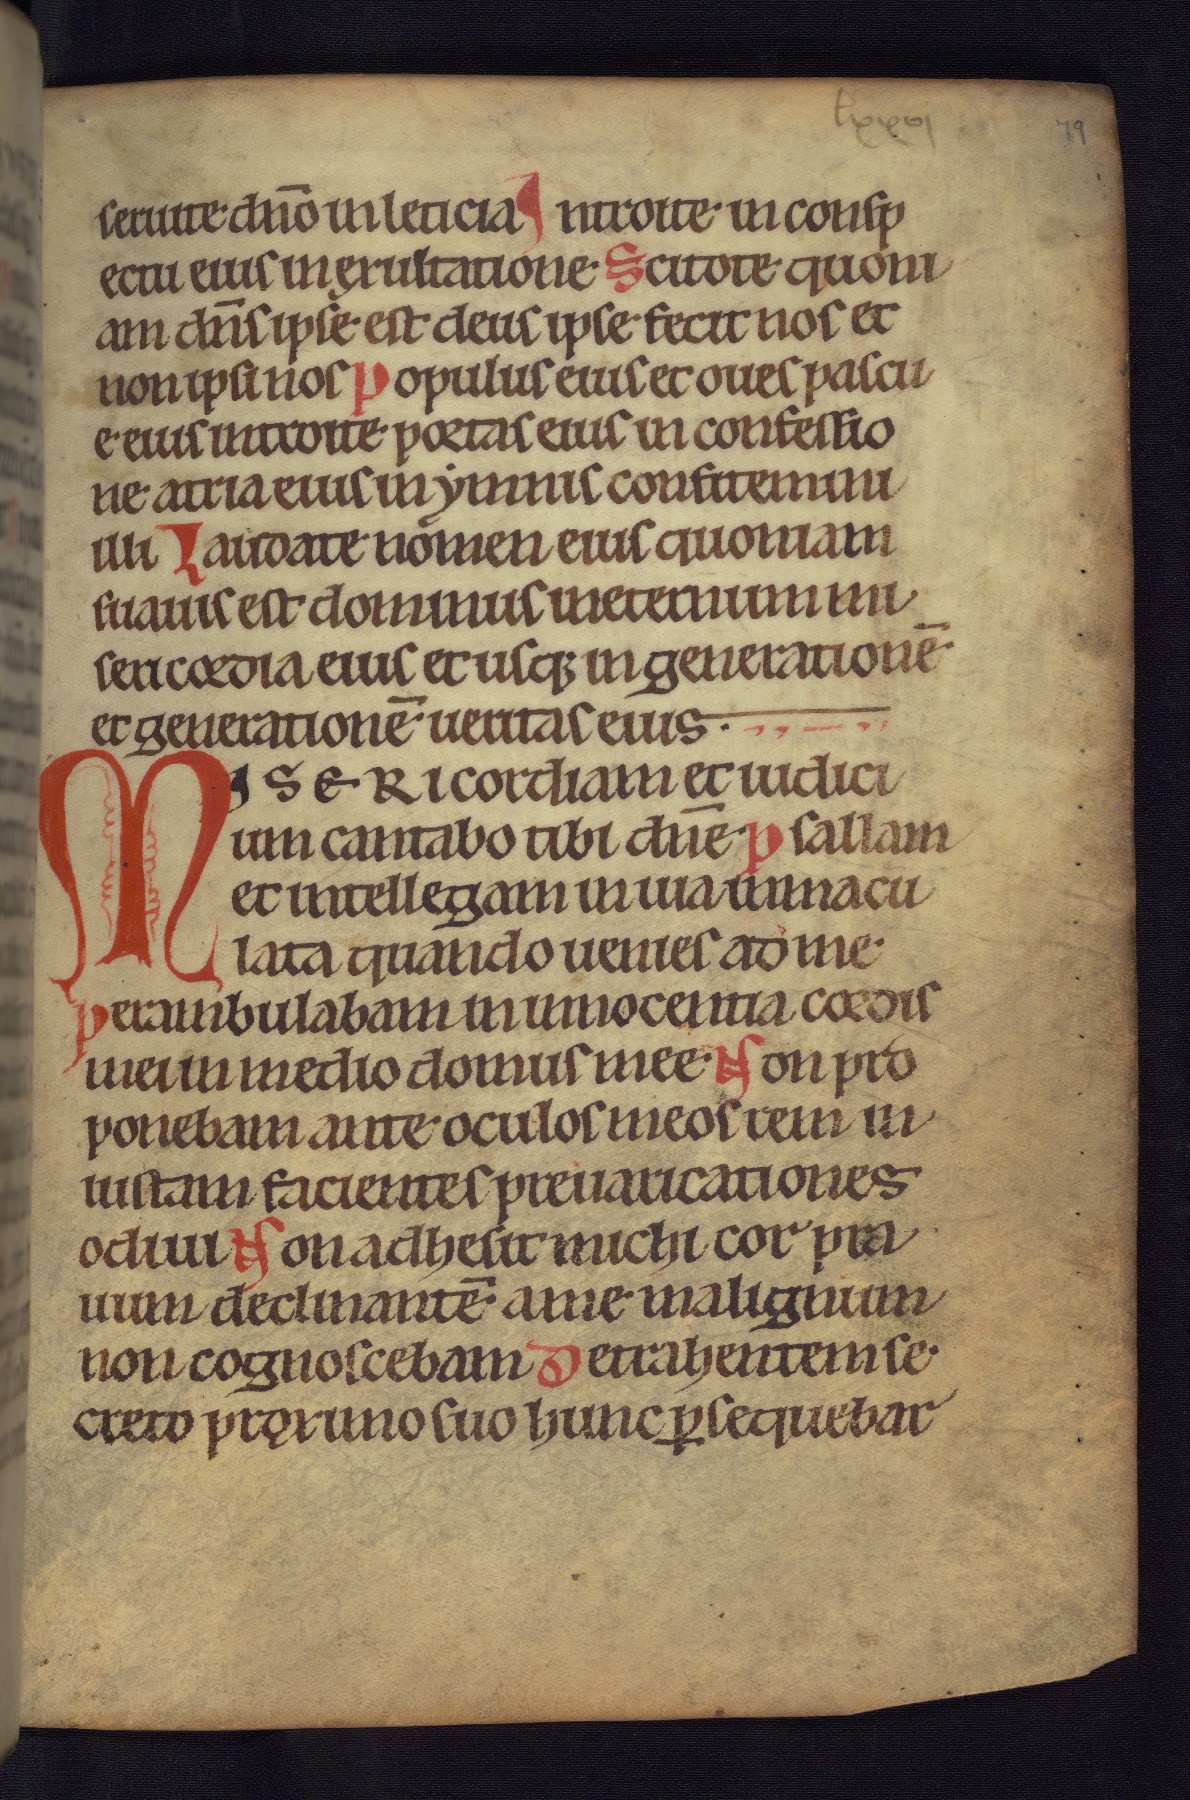 lxxvi 79
seruite dño in leticia Introite in consp
ectu eius in exultatione Scitote quoni
am dñs ipse est deus ipse fecit nos et
non ipsi nos Populus eius et oues pascu
e eius introite portas eius in confessio
ne atria eius in ymnis confitemini
illi Laudate nomen eius quoniam
suauis est dominus in eternum mi
sericordia eius et usq; in generationē
et generationē ueritas eius.
MISERIcordiam et iudici
um cantabo tibi dñe Psallam
et intellegam in uia inmacu
lata quando uenies ad me
Perambulabam in innocentia cordis
mei in medio domus mee Non pro
ponebam ante oculos meos rem in
iustam facientes preuaricationes
odiui Non adhesit michi cor pra
uum declinantē a me malignum
non cognoscebam Detrahentem se
creto proximo suo hunc ꝑsequebar